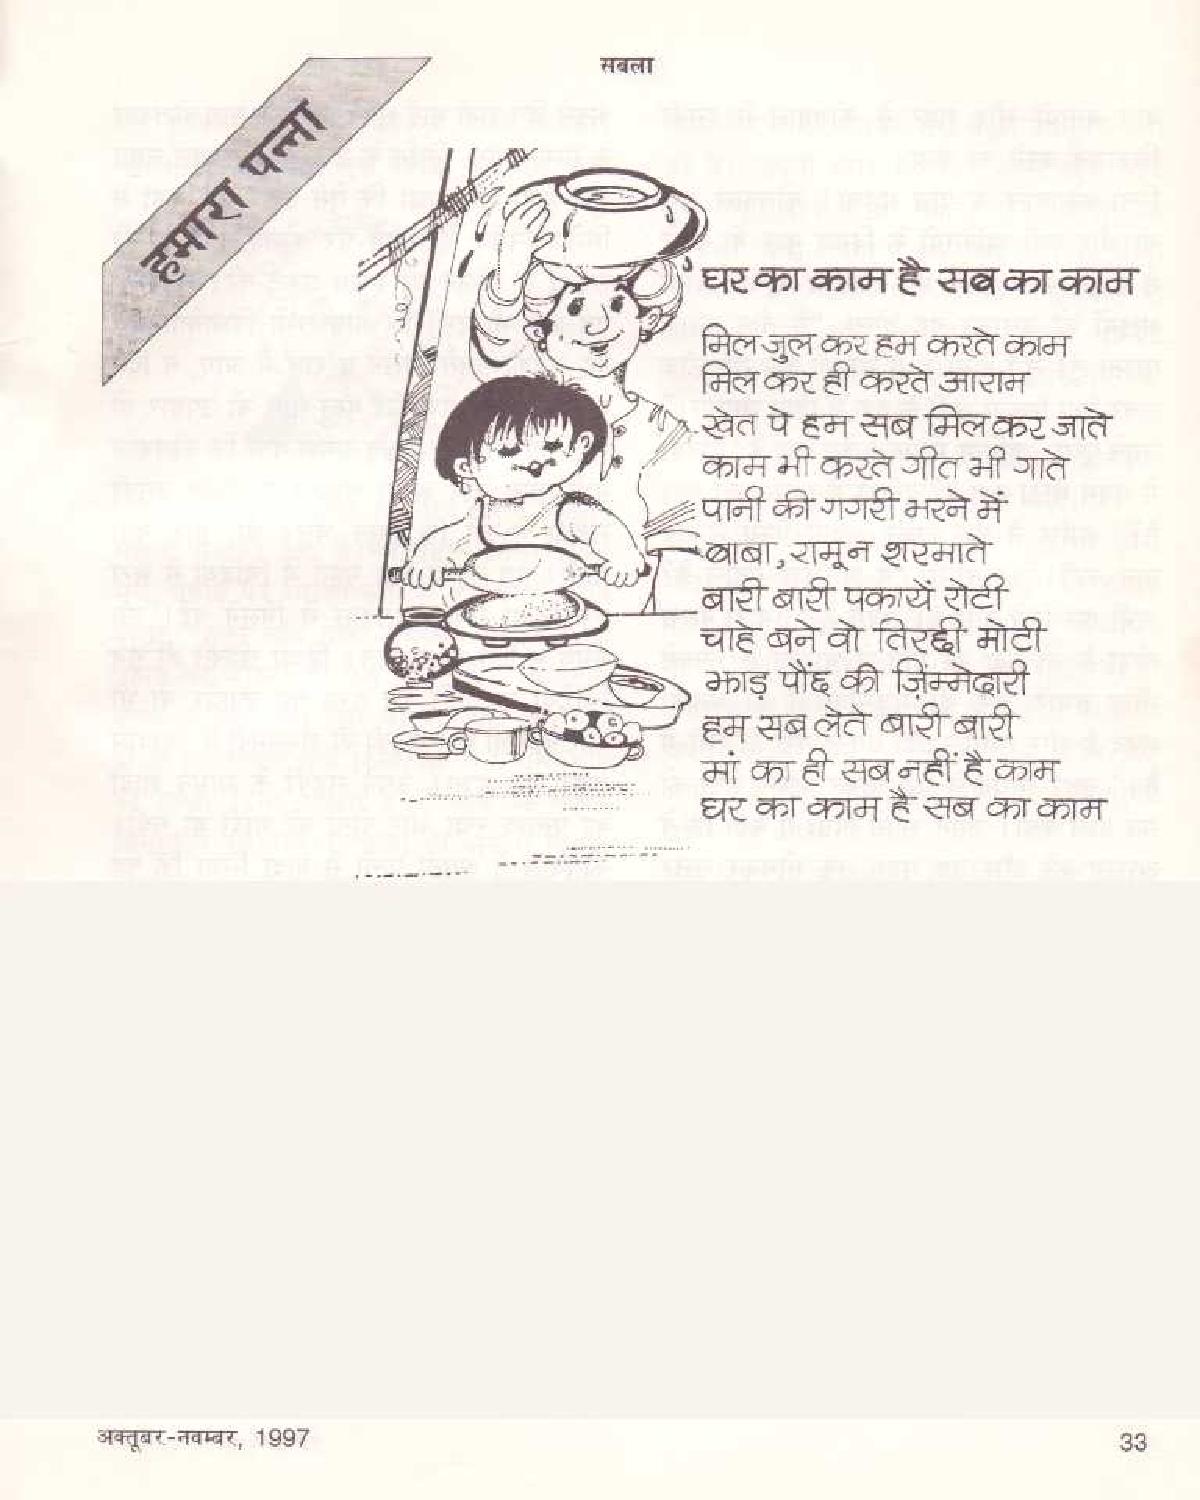 सबला
हमारा पन्ना
घर का काम है सब का काम
मिल जुल कर हम करते काम
मिल कर ही करते आराम
खेत पे हम सब मिल कर जाते
काम भी करते गीत भी गाते
पानी की गगरी भरने में
बाबा, रामू न शरमाते
बारी बारी पकायें रोटी
चाहे बने वो तिरछी मोटी
झाड़ पौंछ की ज़िम्मेदारी
हम सब लेते बारी बारी
मां का ही सब नहीं है काम
घर का काम है सब का काम
अक्तूबर-नवम्बर, 1997
33